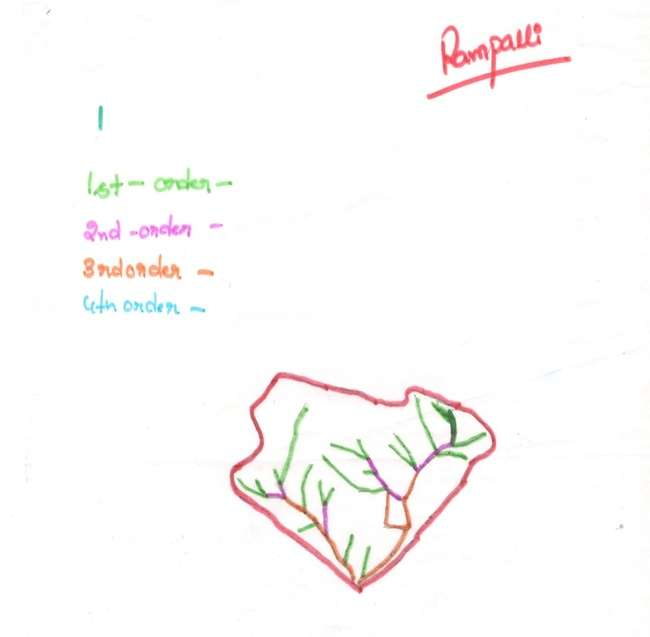 Rampalli
1
1st - order -
2nd - order -
3rd order -
4th order -